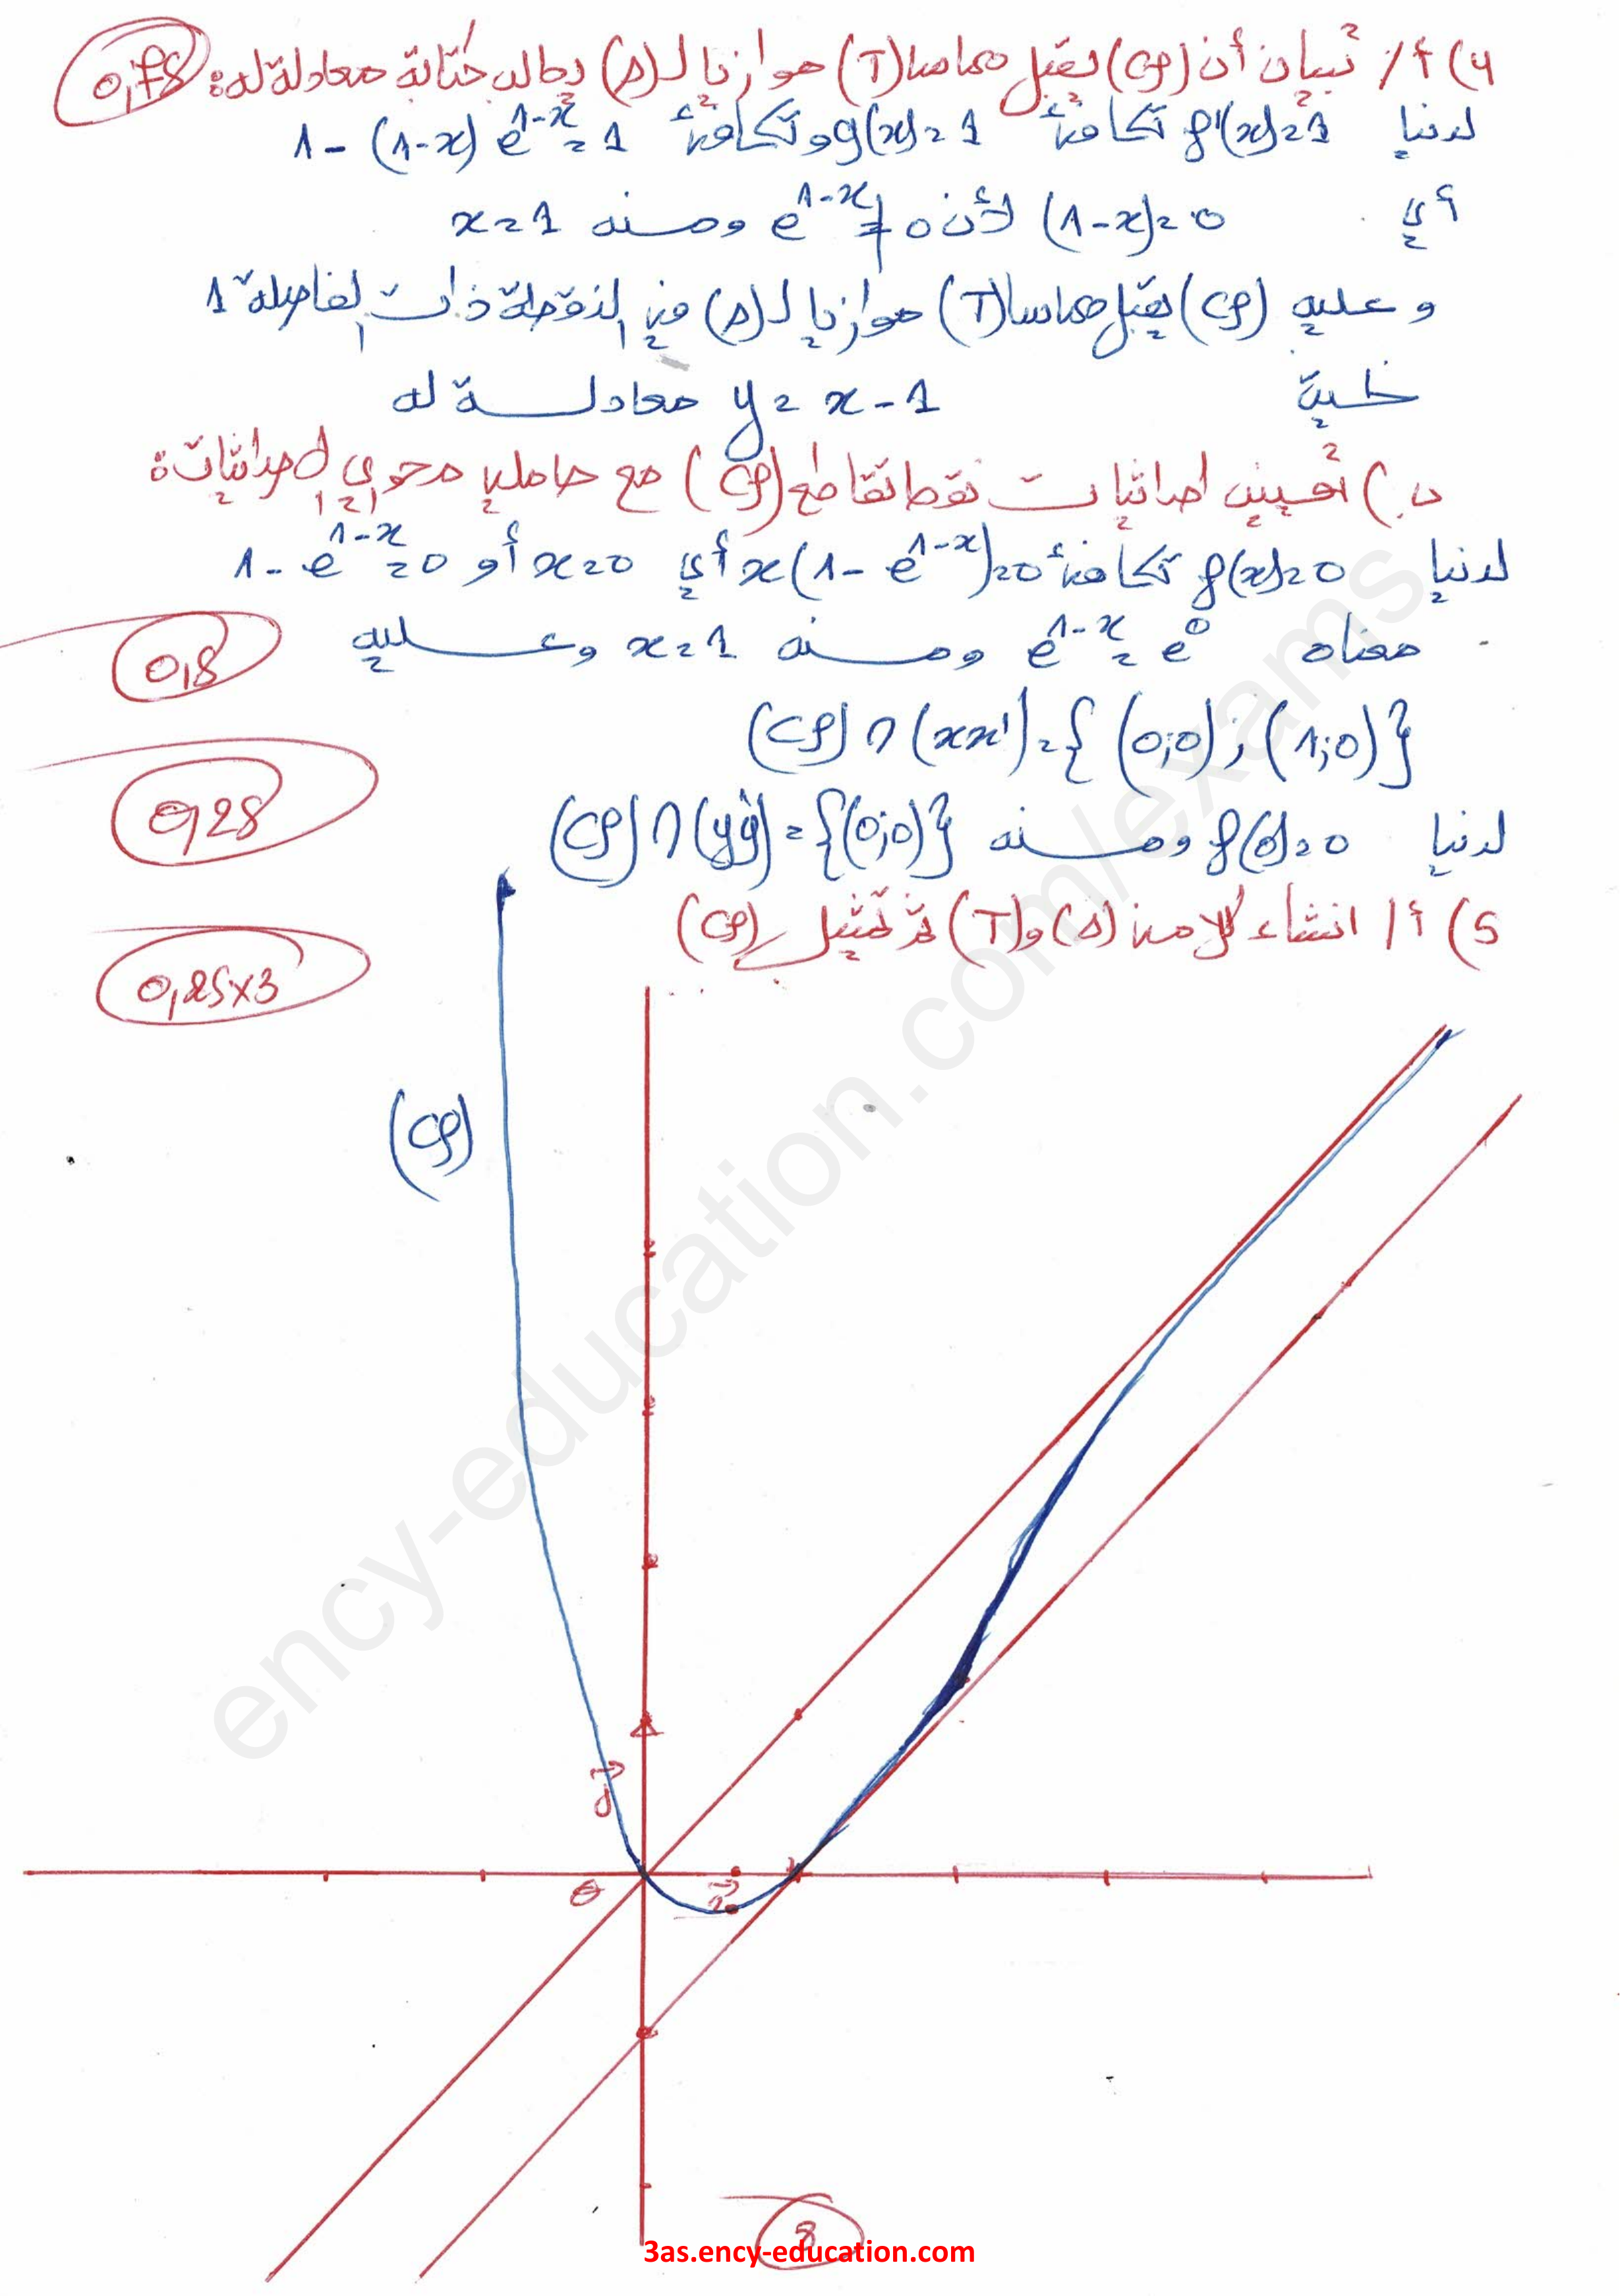 4) أ/ تبيان أن (Cf) يقبل مماسا (T) موازيا لـ (Δ) يطلب كتابة معادلة له: 0,75
لدينا f'(x)=1 تكافئ g(x)=1 وتكافئ 1-(1-x)e^{1-x}=1
أي (1-x)=0 لأن e^{1-x}≠0 ومنه x=1
وعليه (Cf) يقبل مماسا (T) موازيا لـ (Δ) في النقطة ذات الفاصلة 1
y=x-1 معادلة له
ب) تعيين احداثيات نقط تقاطع (Cf) مع حاملي محوري الاحداثيات:
لدينا f(x)=0 تكافئ x(1-e^{1-x})=0 أي x=0 أو 1-e^{1-x}=0
معناه e^{1-x}=e^0 ومنه x=1 وعليه
0,5
(Cf)∩(xx')={(0;0);(1;0)}
0,25
لدينا f(0)=0 ومنه (Cf)∩(yy')={(0;0)}
5) أ/ انشاء كلا من (Δ) و(T) ثم تمثيل (Cf)
0,25×3
(Cf)
j
i
1
O
8
3as.ency-education.com
ency-education.com/exams